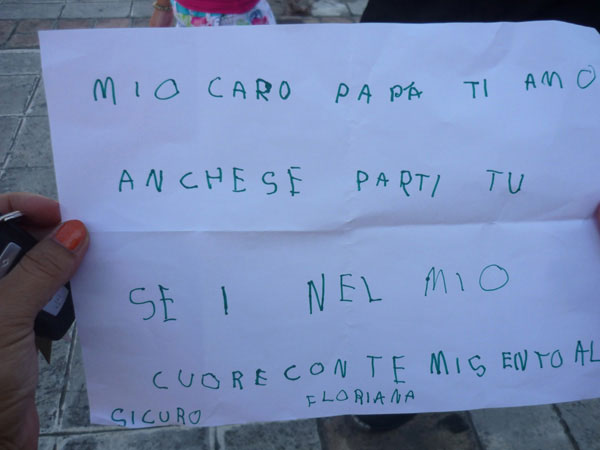 MIO CARO PAPÀ TI AMO
ANCHESE PARTI TU
SEI NEL MIO
CUORECONTE MISENTOAL
SICURO FLORIANA